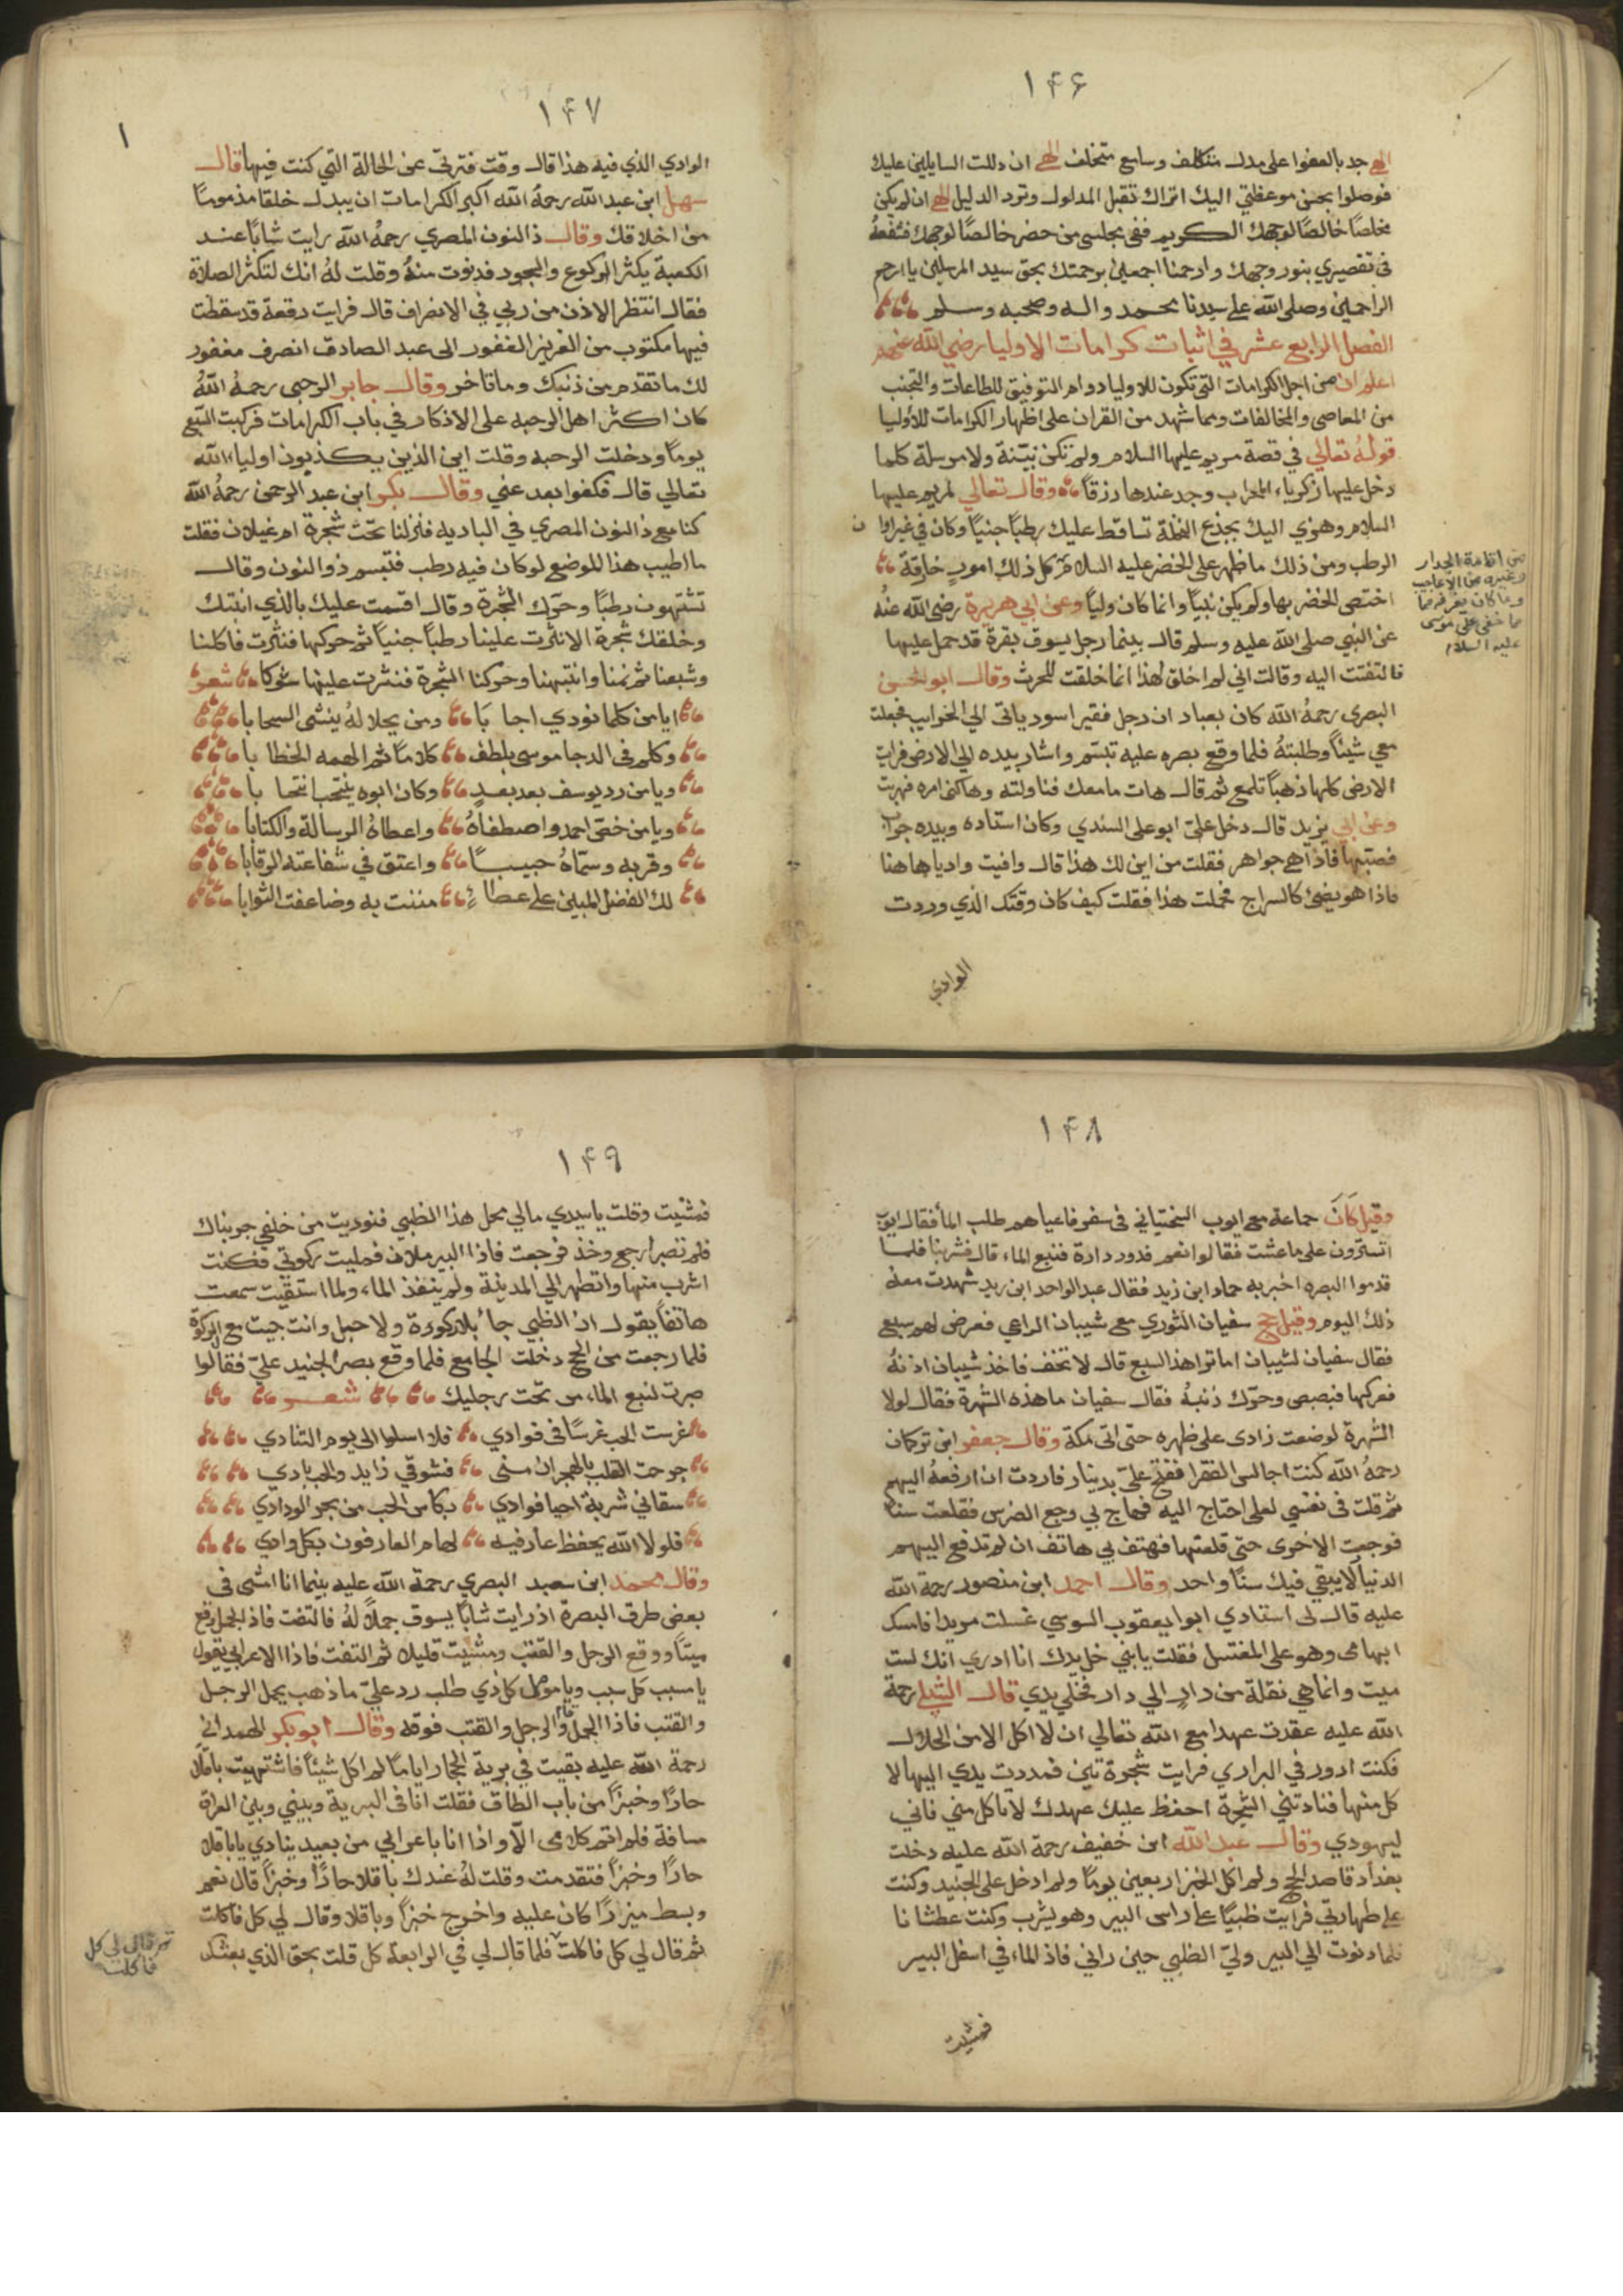 ١٤٦
الهي جد بالعفوا على مدلـ متكلف وسامع متخلف الهي ان دللت السايلين عليك
فوصلوا بحسن موعظتي اليك اتراك تقبل المدلول وترد الدليل الهي ان لم يكن
مخلصًا خالصًا لوجهك الكريم ففي مجلسي من حضر خالصًا لوجهك فشفعهُ
في تقصيري بنور وجهك وارحمنا اجمعين برحمتك بحق سيد المرسلين يا ارحم
الراحمين وصلى الله على سيدنا محمد واله وصحبه وسلم
الفصل الرابع عشر في اثبات كرامات الاوليا رضي الله عنهم
اعلم ان من اجل الكرامات التي تكون للاوليا دوام التوفيق للطاعات والتجنب
من المعاصي والمخالفات ومما شهد من القران على اظهار الكرامات للاوليا
قولهُ تعالي في قصة مريم عليها السلام ولم تكن نبيّنة ولا مرسلة كلما
دخل عليها زكرياء المحراب وجد عندها رزقاً وقال تعالي لمريم عليها
السلام وهزي اليك بجذع النخلة تساقط عليك رطباً جنياً وكان في غير اوان
الرطب ومن ذلك ما ظهر على الخضر عليه السلام كل ذلك امورٍ خارقة
اختص الخضر بها ولم يكن نبياً وانما كان ولياً وعن ابي هريرة رضي الله عنهُ
عن النبي صلى الله عليه وسلم قال بينما رجل يسوق بقرة قد حمل عليها
فالتفتت اليه وقالت اني لم اخلق لهذا انما خلقت للحرث وقال ابو الحسن
البصري رحمهُ الله كان بعباد ان رجل فقير اسود ياتي الي الخرايب فجعلت
معي شيئاً وطلبتهُ فلما وقع بصره عليه تبسّم واشار بيده الي الارض فرايت
الارض كلها ذهباً تلمع ثم قال هات ما معك فناولته وهالني امره فهربت
وعن ابي يزيد قال دخل عليّ ابو علي السندي وكان استاده وبيده جراب
فصبّها فاذا هي جواهر فقلت من اين لك هذا قال وافيت واديا هاهنا
فاذا هو يضيئ كالسراج فحملت هذا فقلت كيف كان وقتك الذي وردت
الوادي
من اقامة الجدار
وغيره من الاعاجيب
وما كان يعرفه مما
خفي على موسى
عليه السلام
١٤٧
الوادي الذي فيه هذا قال وقت فترتي عن الحالة التي كنت فيها قالـ
سهل ابن عبد الله رحمهُ الله اكبر الكرامات ان يبدل خلقا مذموماً
من اخلاقك وقال ذا النون المصري رحمهُ الله رايت شاباً عند
الكعبة يكثر الركوع والسجود فدنوت منهُ وقلت لهُ انك لتكثر الصلاة
فقال انتظر الاذن من ربي في الانصراف قال فرايت رقعة قد سقطت
فيها مكتوب من العزيز الغفور الى عبد الصادق انصرف مغفور
لك ما تقدم من ذنبك وما تاخر وقال جابر الرحبي رحمهُ اللهُ
كان اكثر اهل الرحبه على الاذكار في باب الكرامات فركبت السّبع
يوماً ودخلت الرحبه وقلت اين الذين يكذبون اولياء الله
تعالي قال فكفوا بعد عني وقال بكر ابن عبد الرحمن رحمهُ الله
كنا مع ذا النون المصري في الباديه فنزلنا تحت شجرة ام غيلان فقلت
ما اطيب هذا الموضع لو كان فيه رطب فتبسم ذو النون وقال
تشتهون رطبًا وحرّك الشجرة وقال اقسمت عليك بالذي انبتك
وخلقك شجرة الا نثرت علينا رطباً جنياً ثم حركها فنثرت فاكلنا
وشبعنا ثم نمنا وانتبهنا وحركنا الشجرة فنثرت علينا شوكا شعر
ايا من كلما نودي اجابَا ومن بجلاله ينشى السحابا
وكلم في الدجا موسى بلطف كلاماً ثم الهمه الخطابا
ويا من رد يوسف بعد بعدٍ وكان ابوه ينتحب انتحابا
ويا من خصّ احمد واصطفاهُ واعطاهُ الرسالة والكتابا
وقربه وسمّاهُ حبيبـــًا واعتق في شفاعته الرقابا
لك الفضل المبين على عطاءٍ مننت به وضاعفت الثوابا
١٤٨
وقيل كانَ جماعة مع ايوب السختياني في سفر فاعياهم طلب الماً فقال ايوب
اتسترون على ما عشت فقالوا نعم فدور دارة فنبع الماء قال فشربنا فلما
قدموا البصره اخبر به حماد ابن زيد فقال عبد الواحد ابن زيد شهدت معه
ذلك اليوم وقيل حج سفيان الثوري مع شيبان الراعي فعرض لهم سبع
فقال سفيان لشيبان اما ترا هذا السبع قال لا تخف فاخذ شيبان اذنهُ
فعركها فبصبص وحرّك ذنبهُ فقال سفيان ما هذه الشهرة فقال لولا
الشهرة لوضعت زادى على ظهره حتى اتى مكة وقال جعفر ابن تركان
رحمهُ الله كنت اجالس الفقرا ففتح عليّ بدينار فاردت ان ارفعهُ اليهم
ثم قلت في نفسي لعلي احتاج اليه فهاج بي وجع الضرس فقلعت سناً
فوجعت الاخرى حتّى قلعتها فهتف بي هاتف ان لم تدفع اليهم
الدنيا لا يبقي فيك سنًا واحد وقال احمد ابن منصور رحمة الله
عليه قال لي استادي ابوا يعقوب السوسي غسلت مريدا فامسك
ابهامي وهو على المغتسل فقلت يا بني خل يدك انا ادري انك لست
ميت وانما هي نقلة من دارٍ الي دار فخلي يدي قال الشبلي رحمة
الله عليه عقدت عهدا مع الله تعالي ان لا اكل الا من الحلال
فكنت ادور في البراري فرايت شجرة تين فمددت يدي اليها لا
كل منها فنادتني الشجرة احفظ عليك عهدك لا تاكل مني فاني
ليهودي وقال عبد الله ابن خفيف رحمة الله عليه دخلت
بغداد قاصد الحج ولم اكل الخبز اربعين يوماً ولم ادخل على الجنيد وكنت
على طهارتي فرايت ظبياً على راس البير وهو يشرب وكنت عطشانا
فلما دنوت الي البير وليّ الظبي حين راني فاذ الماء في اسفل البير
فمشيت
١٤٩
فمشيت وقلت يا سيدي مالي محل هذا الظبي فنوديت من خلفي جربناك
فلم تصبر ارجع وخذ فرجعت فاذا البير ملان فمليت ركوتي فكنت
اشرب منها واتطهر الي المدينة ولم ينفذ الماء ولما استقيت سمعت
هاتفاً يقول ان الظبي جاءَ بلا ركوة ولا حبل وانت جيت مع الركوة
فلما رجعت من الحج دخلت الجامع فلما وقع بصر الجنيد عليّ فقال لوا
صبرت لنبع الماء من تحت رجليك شعــر
غرست الحب غرسًا في فوادي فلا اسلوا الى يوم التنادي
جرحت القلب بالهجران مني فشوقي زايد والحب بادي
سقاني شربة احيا فوادي بكاس الحب من بحر الودادي
فلولا الله يحفظ عارفيه لهام العارفون بكل وادي
وقال محمد ابن سعيد البصري رحمة الله عليه بينما انا امشي في
بعض طرق البصرة اذ رايت شاباً يسوق جملاً لهُ فالتفت فاذ الجمل وقع
ميتاً ووقع الرجل والقتب ومشيت قليلا ثم التفت فاذا الاعرابي يقول
يا مسبب كل سبب ويا مومل كل ذي طلب رد عليّ ما ذهب يحمل الرحل
والقتب فاذا الجمل قام والرحل والقتب فوقه وقال ابو بكر الهمداني
رحمة الله عليه بقيت في برية الحجاز اياماً لم اكل شيئاً فاشتهيت باقلا
حارًا وخبزاً من باب الطاق فقلت انا في البرية وبيني وبين العراق
مسافة فلم اتم كلامي الّا واذا انا باعرابي من بعيد ينادي يا باقلا
حارًا وخبزاً فتقدمت وقلت لهُ عندك باقلا حارًا وخبزاً قال نعم
وبسط ميزرًا كان عليه واخرج خبزاً وباقلا وقال لي كل فاكلت
ثم قال لي كل فاكلت فلما قال لي في الرابعة كل قلت بحق الذي بعثك
ثم قال لي كل
فاكلت